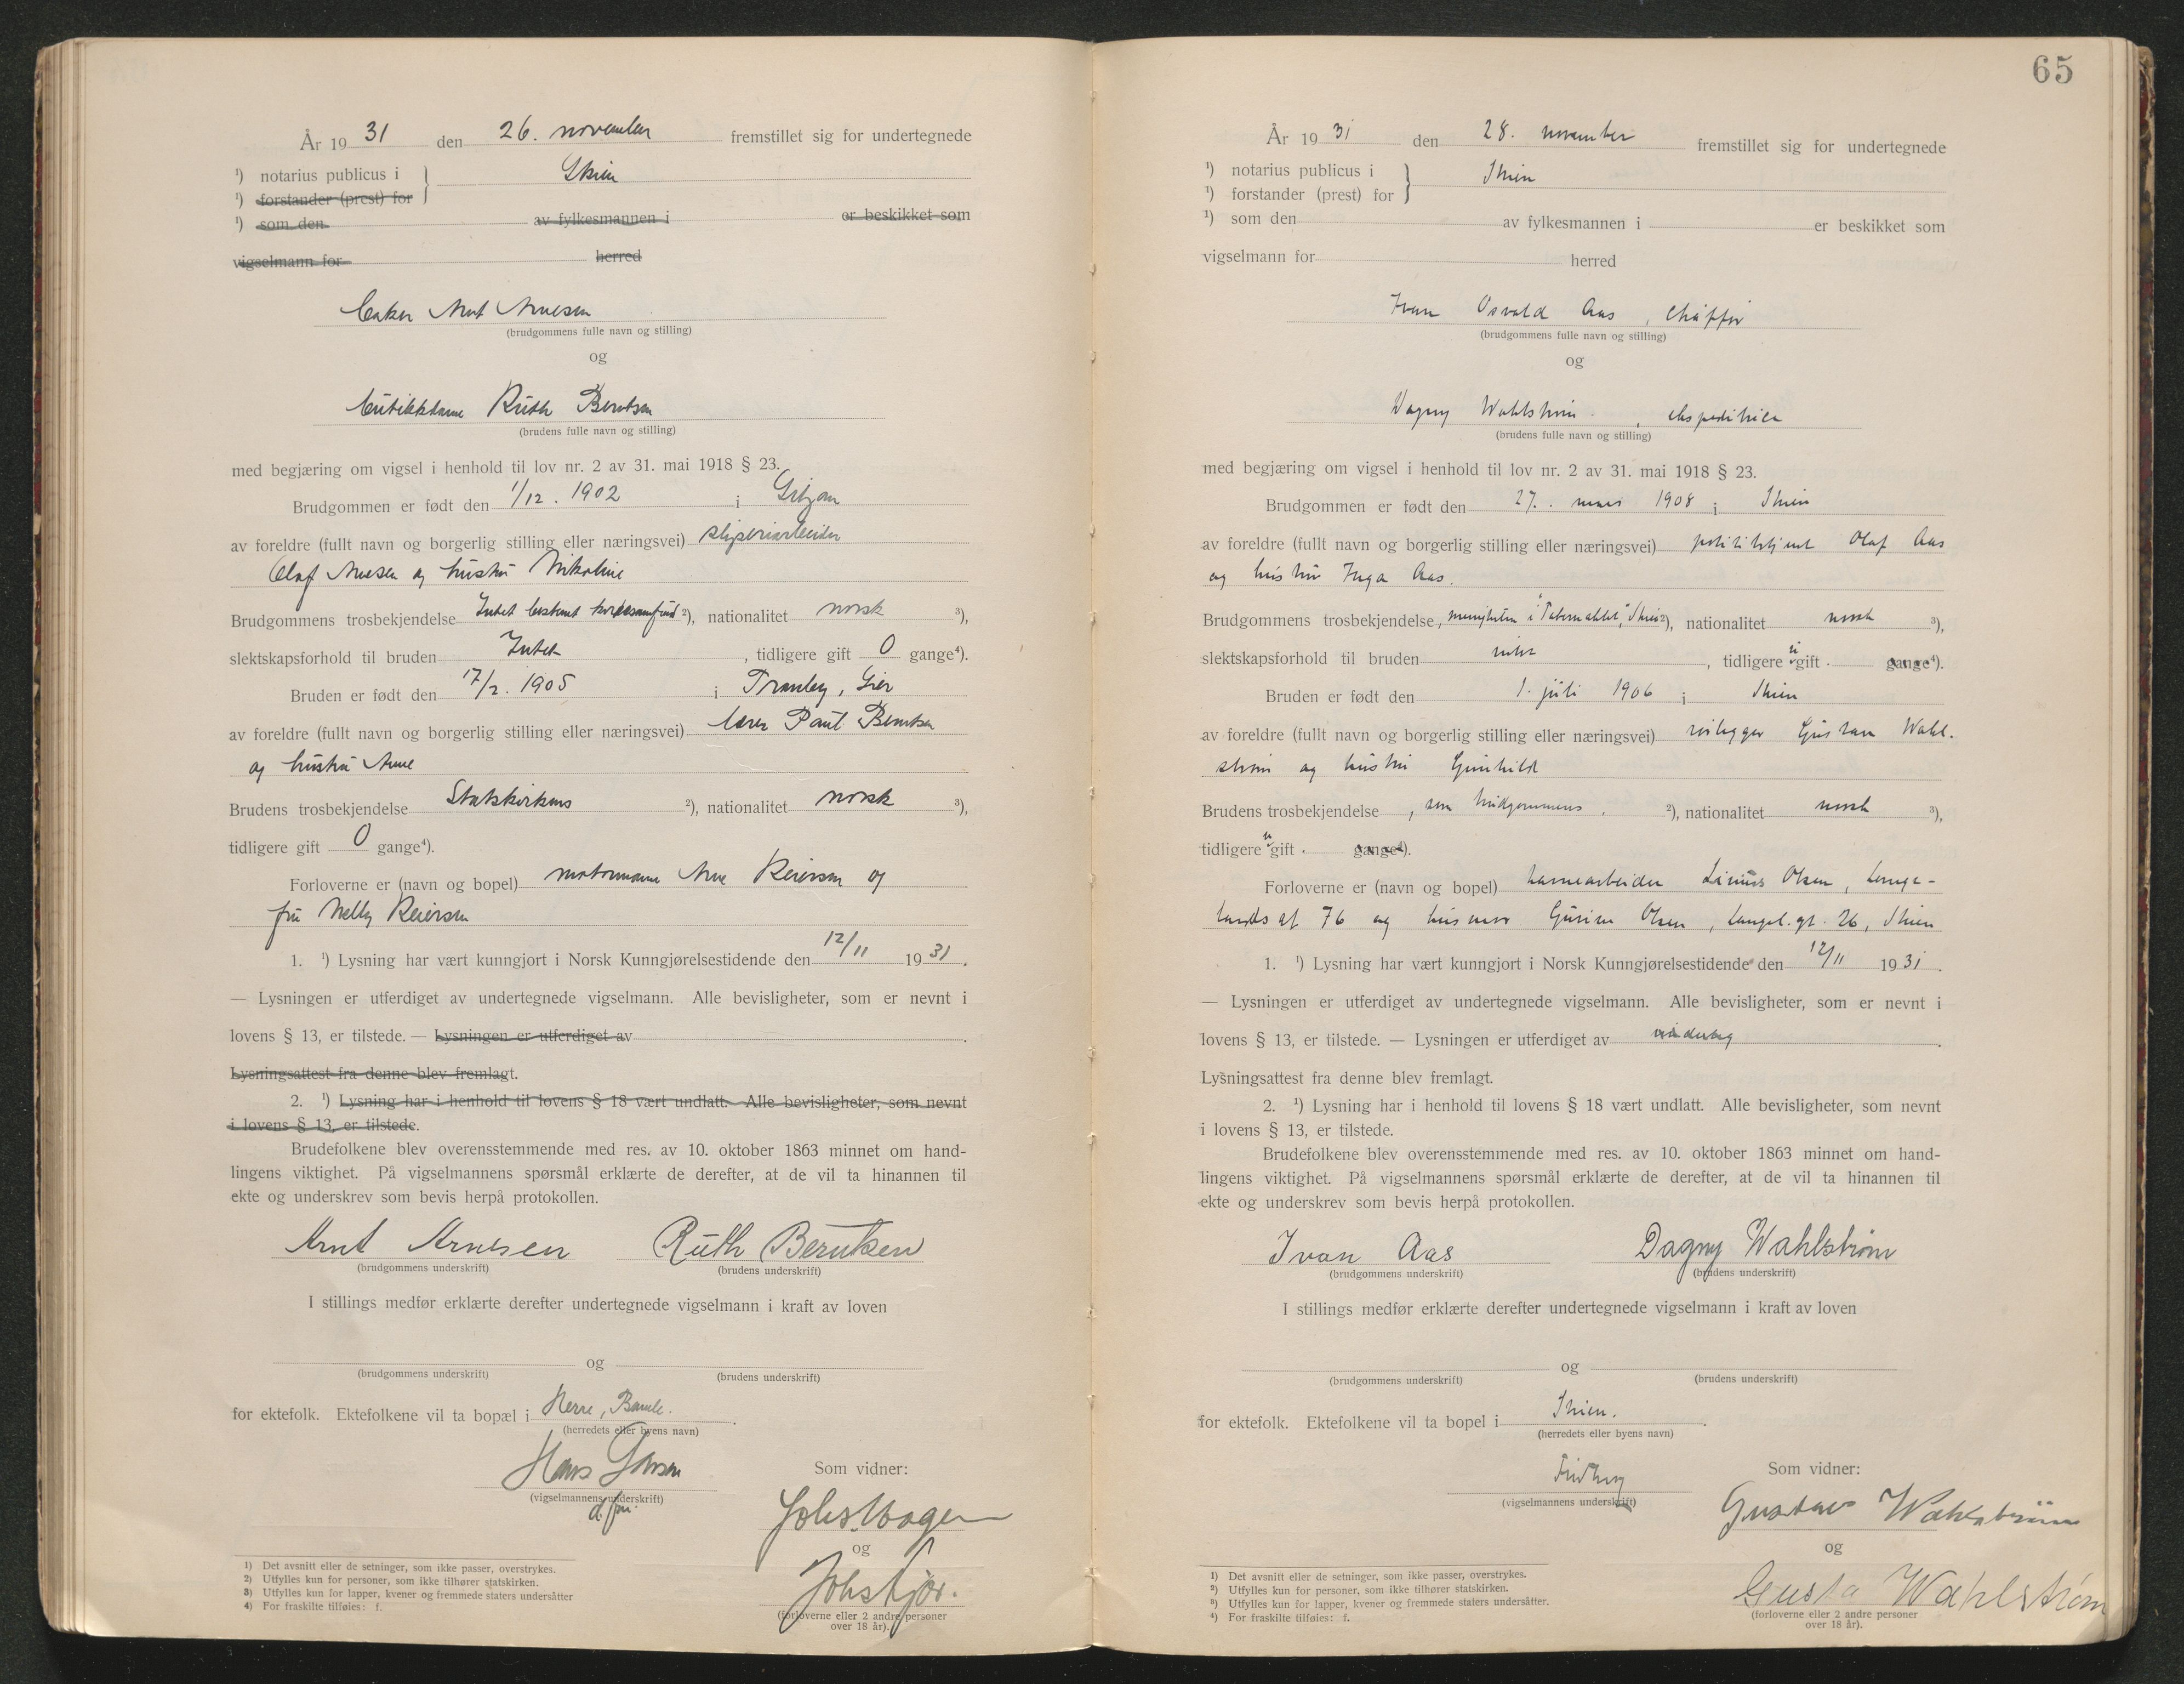 År 1931 den 26. november fremstillet sig for undertegnede
¹) notarius publicus i } Skien
¹) forstander (prest) for
¹) som den av fylkesmannen i er beskikket som
vigselmann for herred
baker Arnt Arnesen
(brudgommens fulle navn og stilling)
og
butikkdame Ruth Berntsen
(brudens fulle navn og stilling)
med begjæring om vigsel i henhold til lov nr. 2 av 31. mai 1918 § 23.
Brudgommen er født den 1/12. 1902 i
av foreldre (fullt navn og borgerlig stilling eller næringsvei) sliperiarbeider
Olaf Arnesen og hustru Nikoline
Brudgommens trosbekjendelse Intet bestemt ²), nationalitet norsk ³),
slektskapsforhold til bruden Intet, tidligere gift 0 gange⁴).
Bruden er født den 17/2. 1905 i Tranby, Lier
av foreldre (fullt navn og borgerlig stilling eller næringsvei) lærer Paul Berntsen
og hustru Anne
Brudens trosbekjendelse Statskirkens ²), nationalitet norsk ³),
tidligere gift 0 gange⁴).
Forloverne er (navn og bopel) motormann Arne Reiersen og
fru Nelly Reiersen
1. ¹) Lysning har vært kunngjort i Norsk Kunngjørelsestidende den 12/11 1931.
— Lysningen er utferdiget av undertegnede vigselmann. Alle bevisligheter, som er nevnt i
lovens § 13, er tilstede. — Lysningen er utferdiget av .
Lysningsattest fra denne blev fremlagt.
2. ¹) Lysning har i henhold til lovens § 18 vært undlatt. Alle bevisligheter, som nevnt
i lovens § 13, er tilstede.
Brudefolkene blev overensstemmende med res. av 10. oktober 1863 minnet om hand-
lingens viktighet. På vigselmannens spørsmål erklærte de derefter, at de vil ta hinannen til
ekte og underskrev som bevis herpå protokollen.
Arnt Arnesen Ruth Berntsen
(brudgommens underskrift) (brudens underskrift)
I stillings medfør erklærte derefter undertegnede vigselmann i kraft av loven
og
(brudgommens underskrift) (brudens underskrift)
for ektefolk. Ektefolkene vil ta bopæl i Herre, Bamle.
(herredets eller byens navn)
Hans
(vigselmannens underskrift)
Som vidner:
og
(forloverne eller 2 andre personer
over 18 år).
1) Det avsnitt eller de setninger, som ikke passer, overstrykes.
2) Utfylles kun for personer, som ikke tilhører statskirken.
3) Utfylles kun for lapper, kvener og fremmede staters undersåtter
4) For fraskilte tilføies: f.
65
År 1931 den 28. november fremstillet sig for undertegnede
¹) notarius publicus i } Skien
¹) forstander (prest) for
¹) som den av fylkesmannen i er beskikket som
vigselmann for herred
Ivan Osvald Aas, chaufför
(brudgommens fulle navn og stilling)
og
Dagny Wahlstrøm, ekspeditrice
(brudens fulle navn og stilling)
med begjæring om vigsel i henhold til lov nr. 2 av 31. mai 1918 § 23.
Brudgommen er født den 27. mars 1908 i Skien
av foreldre (fullt navn og borgerlig stilling eller næringsvei) politibetjent Olaf Aas
og hustru Inga Aas.
Brudgommens trosbekjendelse, menigheten i "Tabernaklet", Skien ²), nationalitet norsk ³),
slektskapsforhold til bruden intet, tidligere ugift gange⁴).
Bruden er født den 1. juli 1906 i Skien
av foreldre (fullt navn og borgerlig stilling eller næringsvei) rørlegger Gustav Wahl-
strøm og hustru Gunhild
Brudens trosbekjendelse, som brudgommens. ²), nationalitet norsk ³),
tidligere ugift gange⁴).
Forloverne er (navn og bopel) havnearbeider Linius Olsen, Lange-
lands gt 76 og Olsen, Langel. gt. 26, Skien
1. ¹) Lysning har vært kunngjort i Norsk Kunngjørelsestidende den 12/11 1931.
— Lysningen er utferdiget av undertegnede vigselmann. Alle bevisligheter, som er nevnt i
lovens § 13, er tilstede. — Lysningen er utferdiget av .
Lysningsattest fra denne blev fremlagt.
2. ¹) Lysning har i henhold til lovens § 18 vært undlatt. Alle bevisligheter, som nevnt
i lovens § 13, er tilstede.
Brudefolkene blev overensstemmende med res. av 10. oktober 1863 minnet om hand-
lingens viktighet. På vigselmannens spørsmål erklærte de derefter, at de vil ta hinannen til
ekte og underskrev som bevis herpå protokollen.
Ivan Aas Dagny Wahlstrøm
(brudgommens underskrift) (brudens underskrift)
I stillings medfør erklærte derefter undertegnede vigselmann i kraft av loven
og
(brudgommens underskrift) (brudens underskrift)
for ektefolk. Ektefolkene vil ta bopel i Skien.
(herredets eller byens navn)
(vigselmannens underskrift)
Som vidner:
Gustav Wahlstrøm
og
Gusta Wahlstrøm
(forloverne eller 2 andre personer
over 18 år).
1) Det avsnitt eller de setninger, som ikke passer, overstrykes.
2) Utfylles kun for personer, som ikke tilhører statskirken.
3) Utfylles kun for lapper, kvener og fremmede staters undersåtter.
4) For fraskilte tilføies: f.